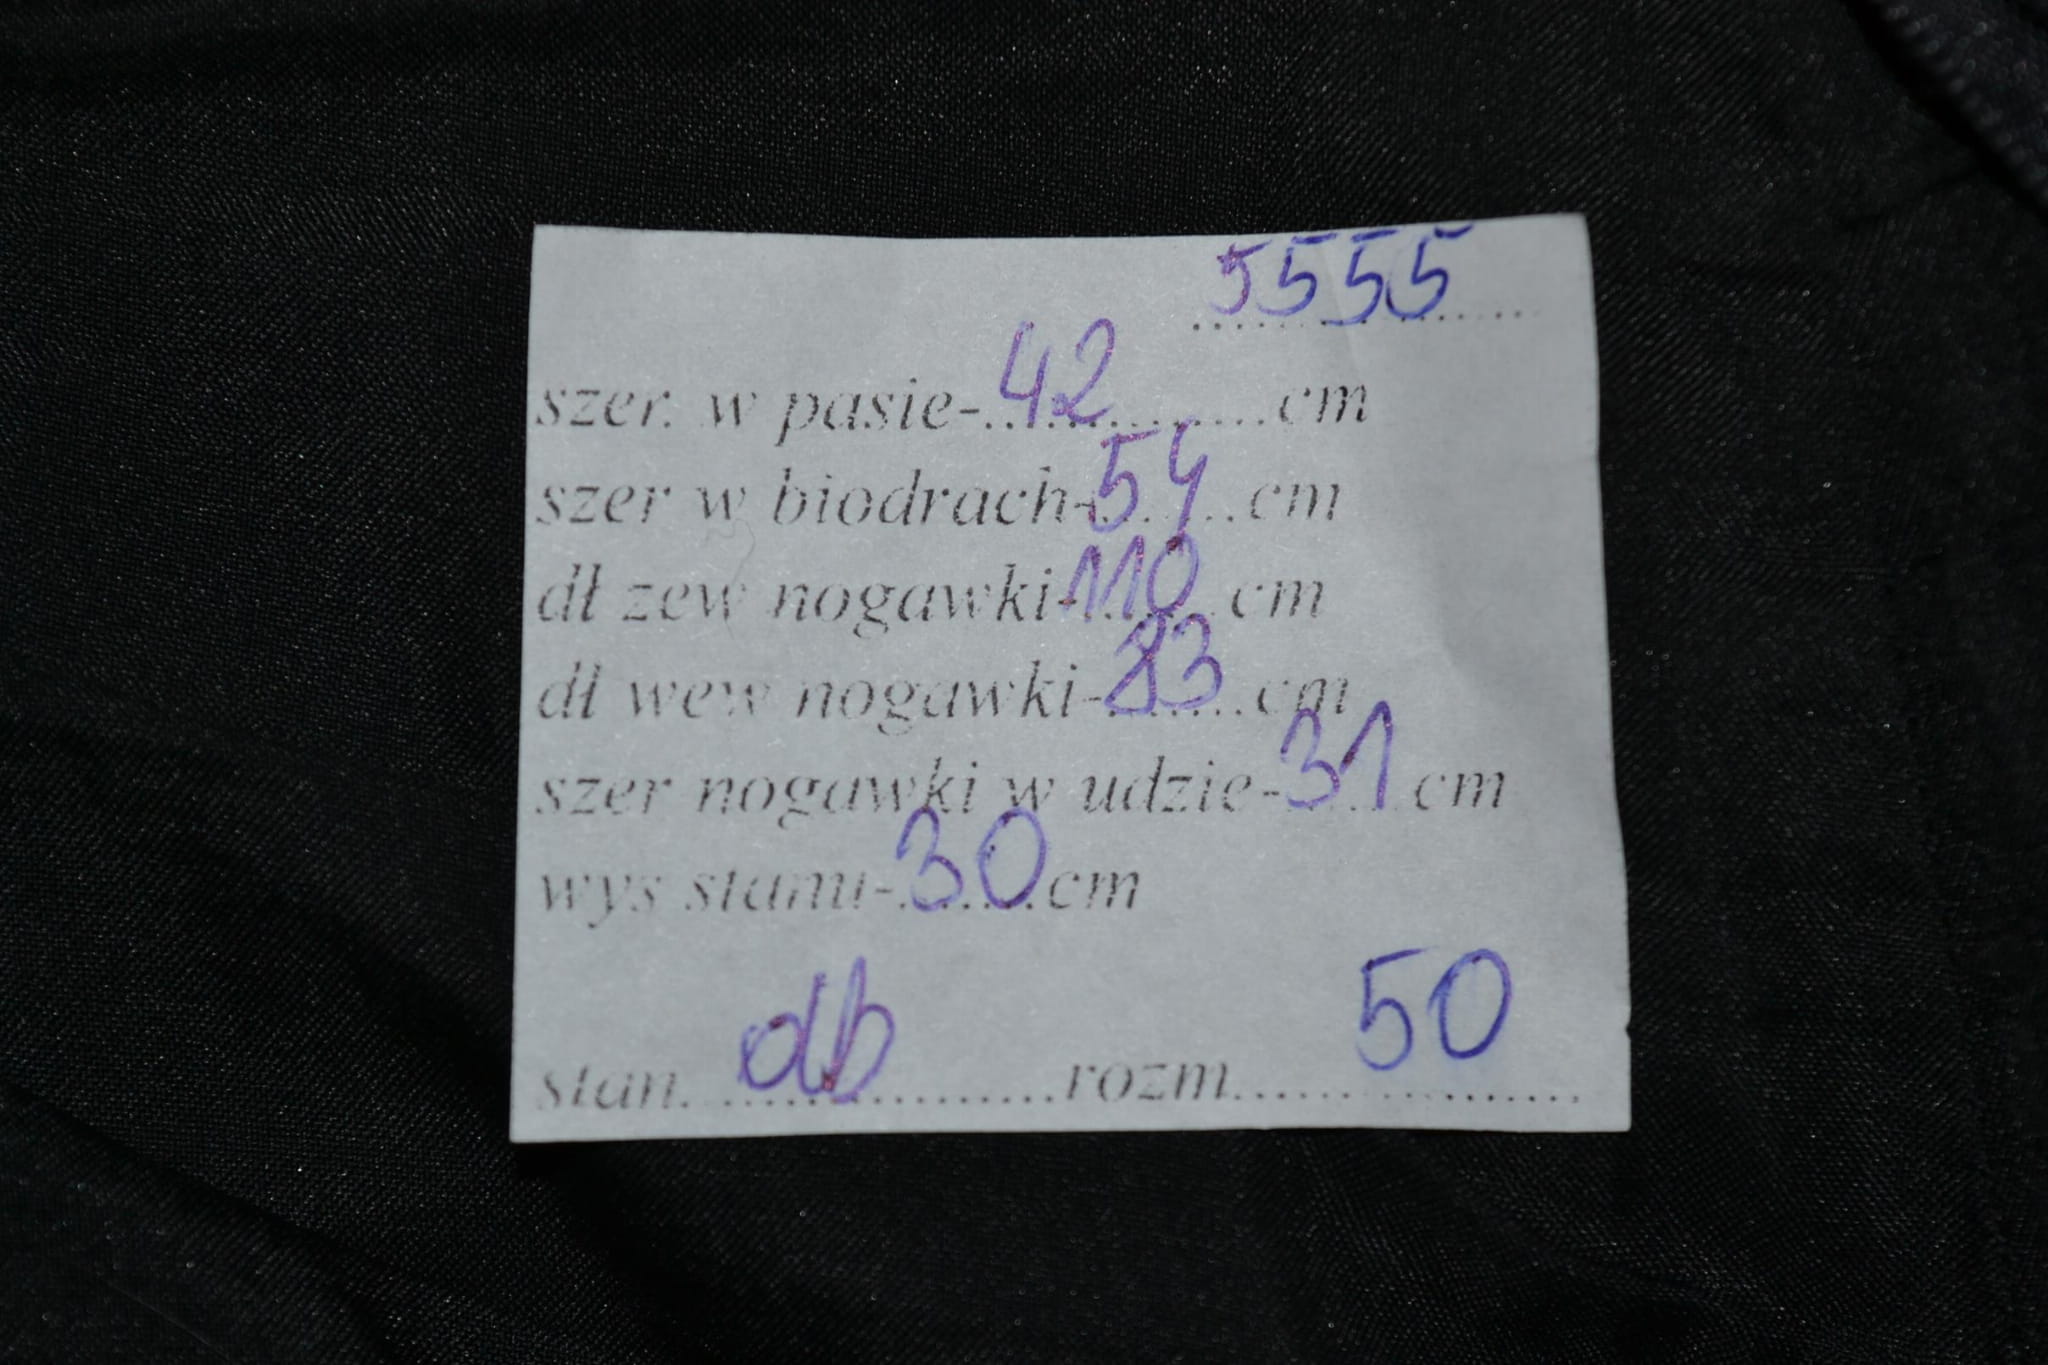 5555
szer. w pasie-..42..........cm
szer w biodrach-54.....cm
dł zew nogawki-110...cm
dł wew nogawki-83......cm
szer nogawki w udzie-31...cm
wys stanu-30.cm
stan...db..........rozm....50............